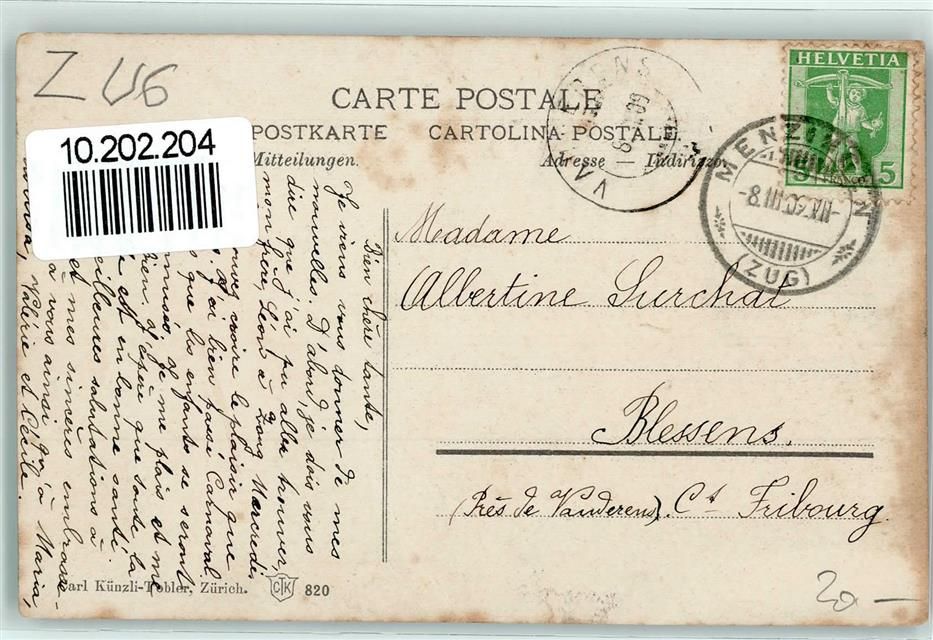 ZUG
10.202.204
CARTE POSTALE
POSTKARTE CARTOLINA-POSTALE
Mitteilungen.
Adresse — Indirizzo
HELVETIA
5
MENZINGEN
-8.III.
(ZUG)
Madame
Albertine Surchat
Blessens.
(Près de Vauderens). Ct Fribourg.
Bien chère tante,
Je viens vous donner de mes
nouvelles. D'abord, je dois vous
dire que j'ai pu aller trouver,
mon frère Léon à Zoug Mercredi
voire le plaisir que
j'ai bien passé Carnaval
que les enfants se seront
je me plais et me
bien, j'espère que toute la
est en bonne santé
meilleures salutations à
et mes sincères embrasse-
à vous ainsi qu'à Maria,
Valérie et Cécile.
Carl Künzli-Tobler, Zürich. CTK 820
20 —